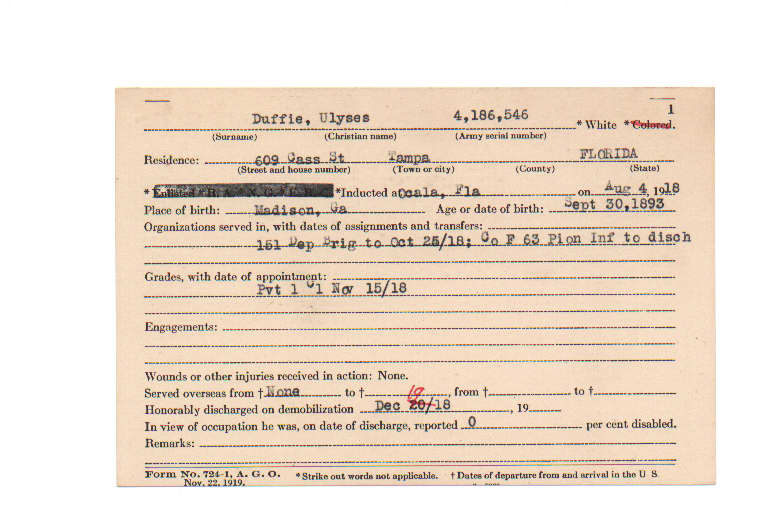 1
Duffie, Ulyses 4,186,546 * White * Colored.
(Surname) (Christian name) (Army serial number)
Residence: 609 Cass St Tampa FLORIDA
(Street and house number) (Town or city) (County) (State)
* Enlisted * R. A. N. G. *Inducted at Ocala, Fla on Aug 4, 1918
Place of birth: Madison, Ga Age or date of birth: Sept 30,1893
Organizations served in, with dates of assignments and transfers:
151 Dep Brig to Oct 25/18; Co F 63 Pion Inf to disch
Grades, with date of appointment:
Pvt 1 Cl Nov 15/18
Engagements:
Wounds or other injuries received in action: None.
Served overseas from † None to †, from † to †
19
Honorably discharged on demobilization Dec 20/18, 19
In view of occupation he was, on date of discharge, reported 0 per cent disabled.
Remarks:
Form No. 724-1, A. G. O. * Strike out words not applicable. † Dates of departure from and arrival in the U S.
Nov. 22, 1919.